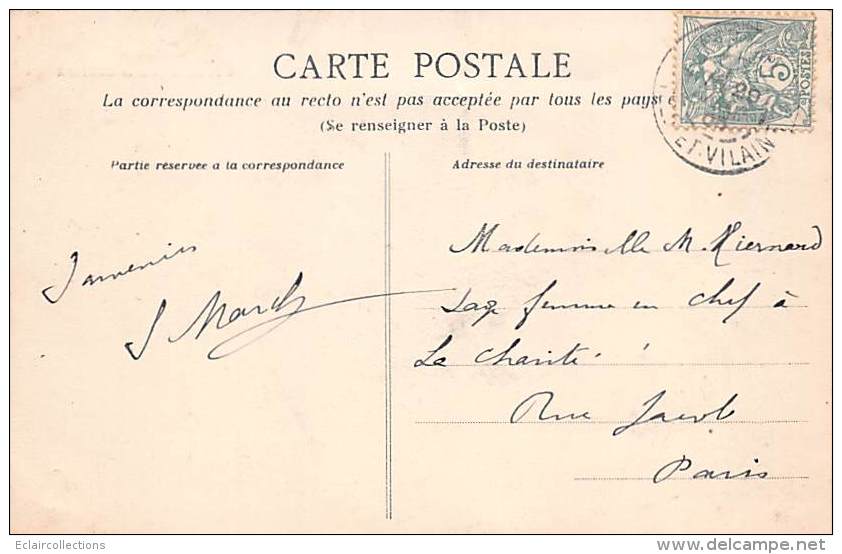 CARTE POSTALE
La correspondance au recto n'est pas acceptée par tous les pays
(Se renseigner à la Poste)
Partie réservée à la correspondance
Adresse du destinataire
5
POSTES
ET-VILAIN
Souvenirs
Mademoiselle M. Hiernard
Sage femme en chef à
La Charité
Rue Jacob
Paris
Eclaircollections
www.delcampe.net